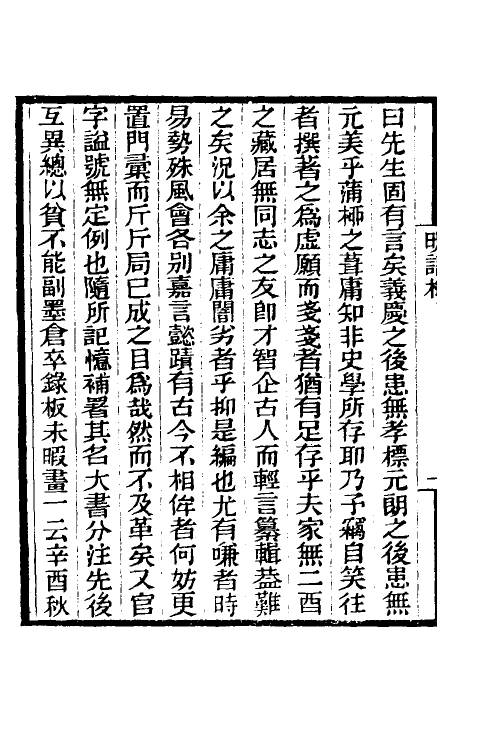 曰先生固有言矣義慶之後患無孝標元朗之後患無
元美乎蒲柳之葺庸知非史學所存耶乃予竊自笑往
者撰著之為虛願而戔戔者猶有足存乎夫家無二酉
之藏居無同志之友卽才智企古人而輕言纂輯葢難
之矣況以余之庸庸闇劣者乎抑是編也尤有嗛者時
易勢殊風會各別嘉言懿蹟有古今不相侔者何妨更
置門彙而斤斤局已成之目為哉然而不及革矣又官
字謚號無定例也隨所記憶補署其名大書分注先後
互異總以貧不能副墨倉卒錄板未暇畫一云辛酉秋